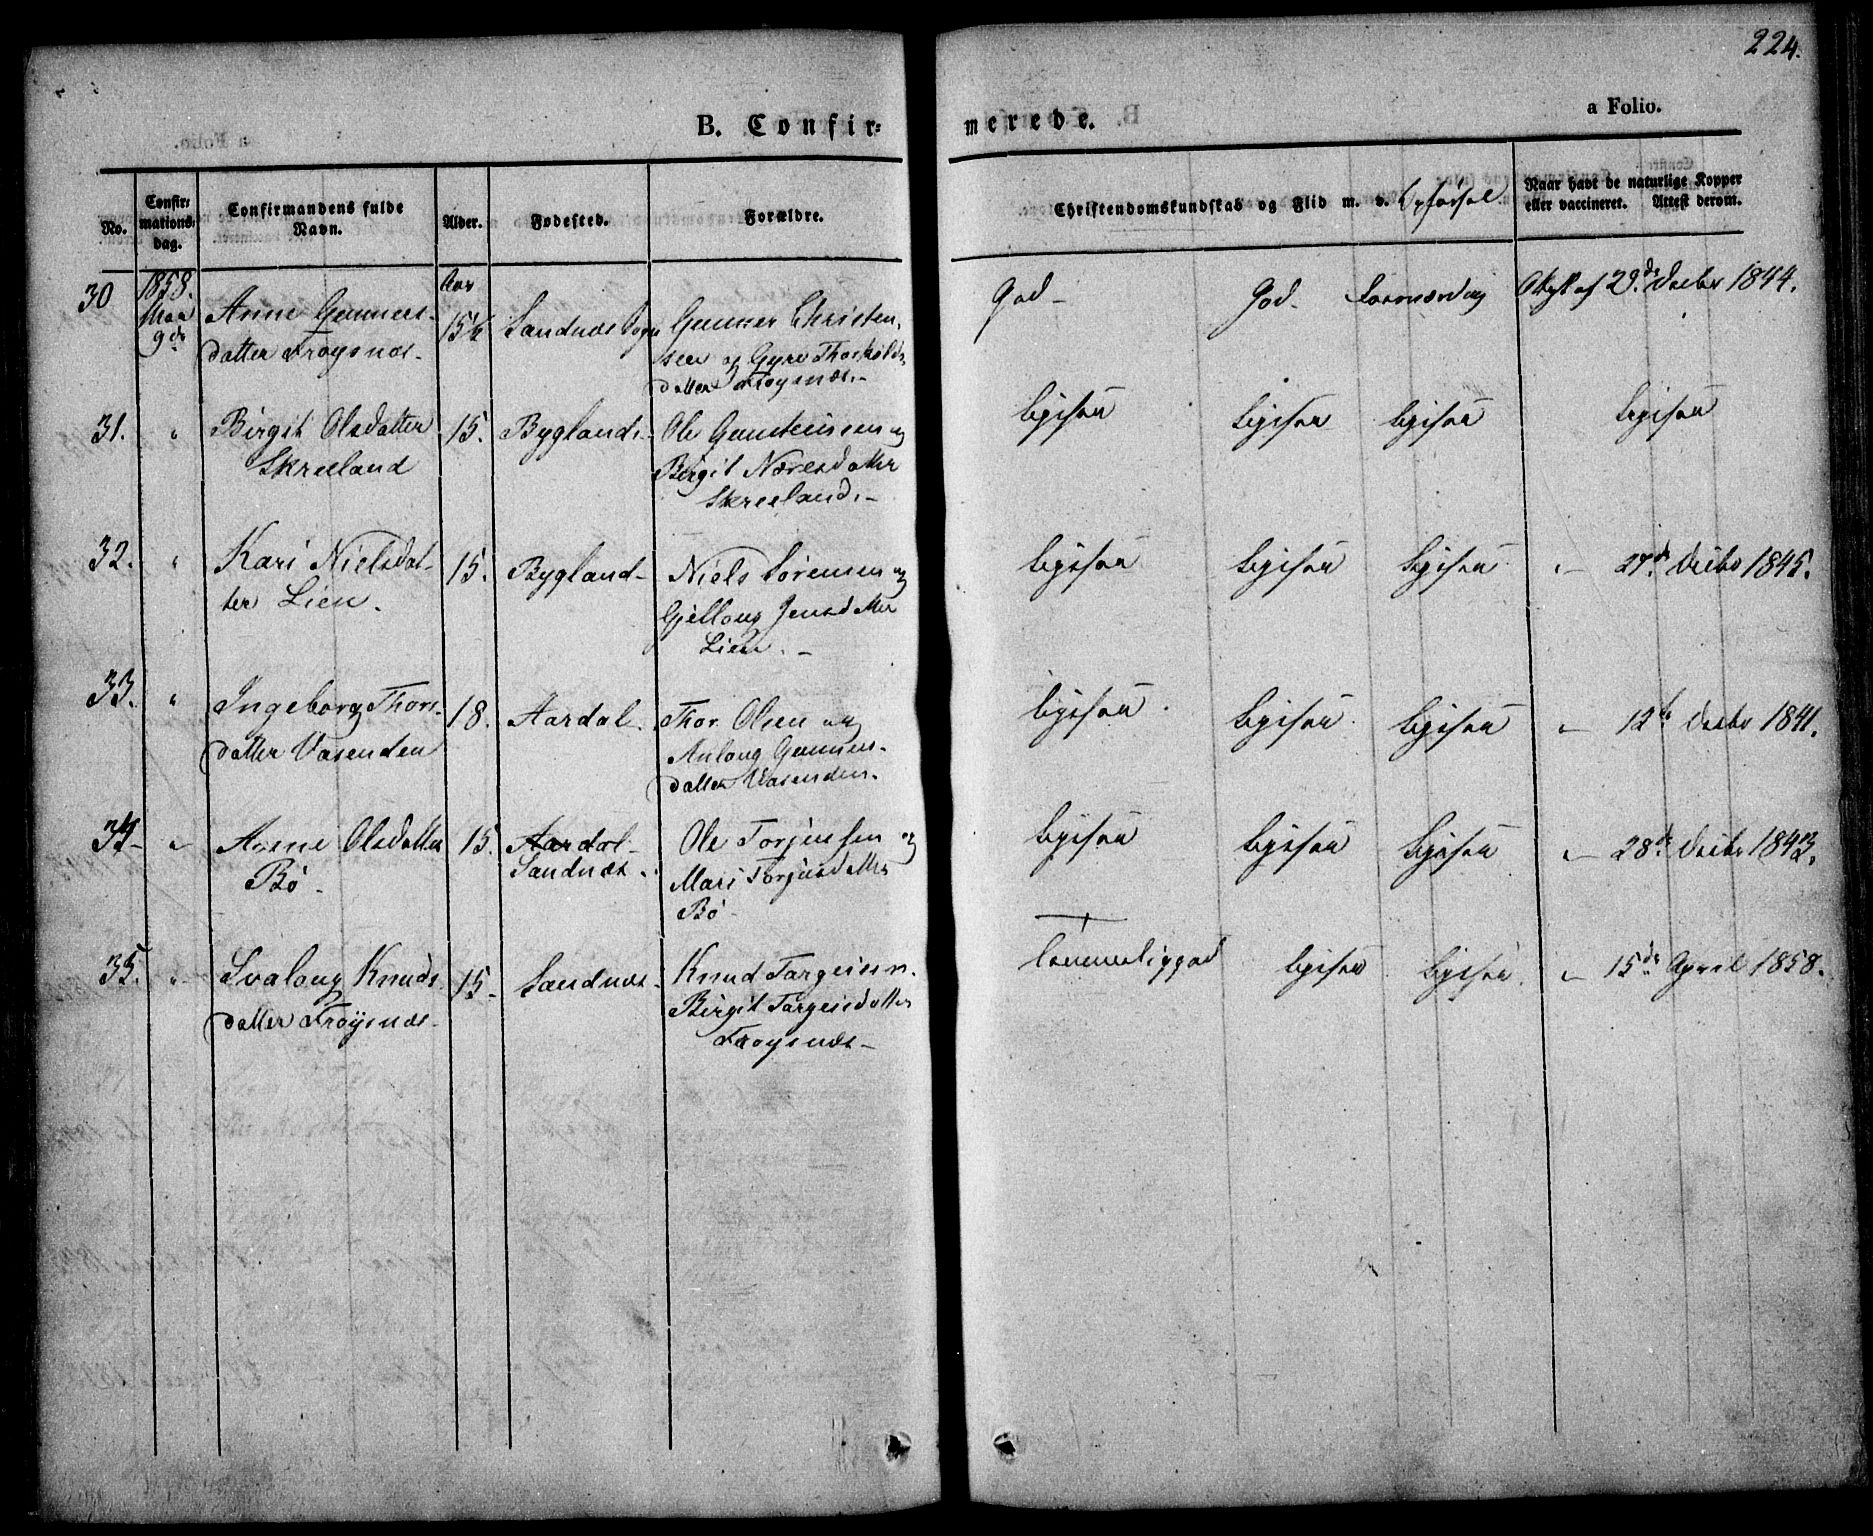 224.
B. Confir=
merede.
a Folio.
No.
Confir=
mations=
dag.
Confirmandens fulde
Navn.
Alder.
Fødested.
Forældre.
Christendomskundskab og Flid m. v. Opførsel
Naar havt de naturlige Kopper
eller vaccineret. Attest derom.
30
1858.
9de
Anne Gunners-
datter Frøysnæs.
Aar
15½
Sandnæs Sogn
Gunner Christen-
sen og Gyro Thorkilds-
datter Frøysnæs.-
God-
God-
29de Decbr 1844.
31.
"
Birgit Olsdatter
Skreeland
15.
Byglands-
Ole Gunsteinsen og
Birgit Næresdatter
Skreeland.-
Ligesaa
Ligesaa
Ligesaa
Ligesaa
32.
"
Kari Nielsdat-
ter Lien.
15.
Bygland-
Niels Sørensen og
Gjellaug Jensdatter
Lien. -
Ligesaa
Ligesaa
Ligesaa
" 27de Decbr 1845.
33.
"
Ingeborg Thors-
datter Vasenden
18.
Aardal.
Thor Olsen og
Anlaug Gunners-
datter Vasenden.
Ligesaa.
Ligesaa.
Ligesaa
" 12te Decbr 1841.
34-
"
Anne Olsdatter
Bø.
15.
Aardal-
Sandnæs.
Ole Torjussen og
Mari Torjusdatter
Bø-
Ligesaa
Ligesaa
Ligesaa
" 28de Decbr 1843.
35.
"
Svalaug Knuds-
datter Frøysnæs-
15-
Sandnæs-
Knud Targeisen.
Birgit Targeisdatter
Frøysnæs-
Temmelig god
Ligesaa
Ligesaa.
" 15de April 1858.